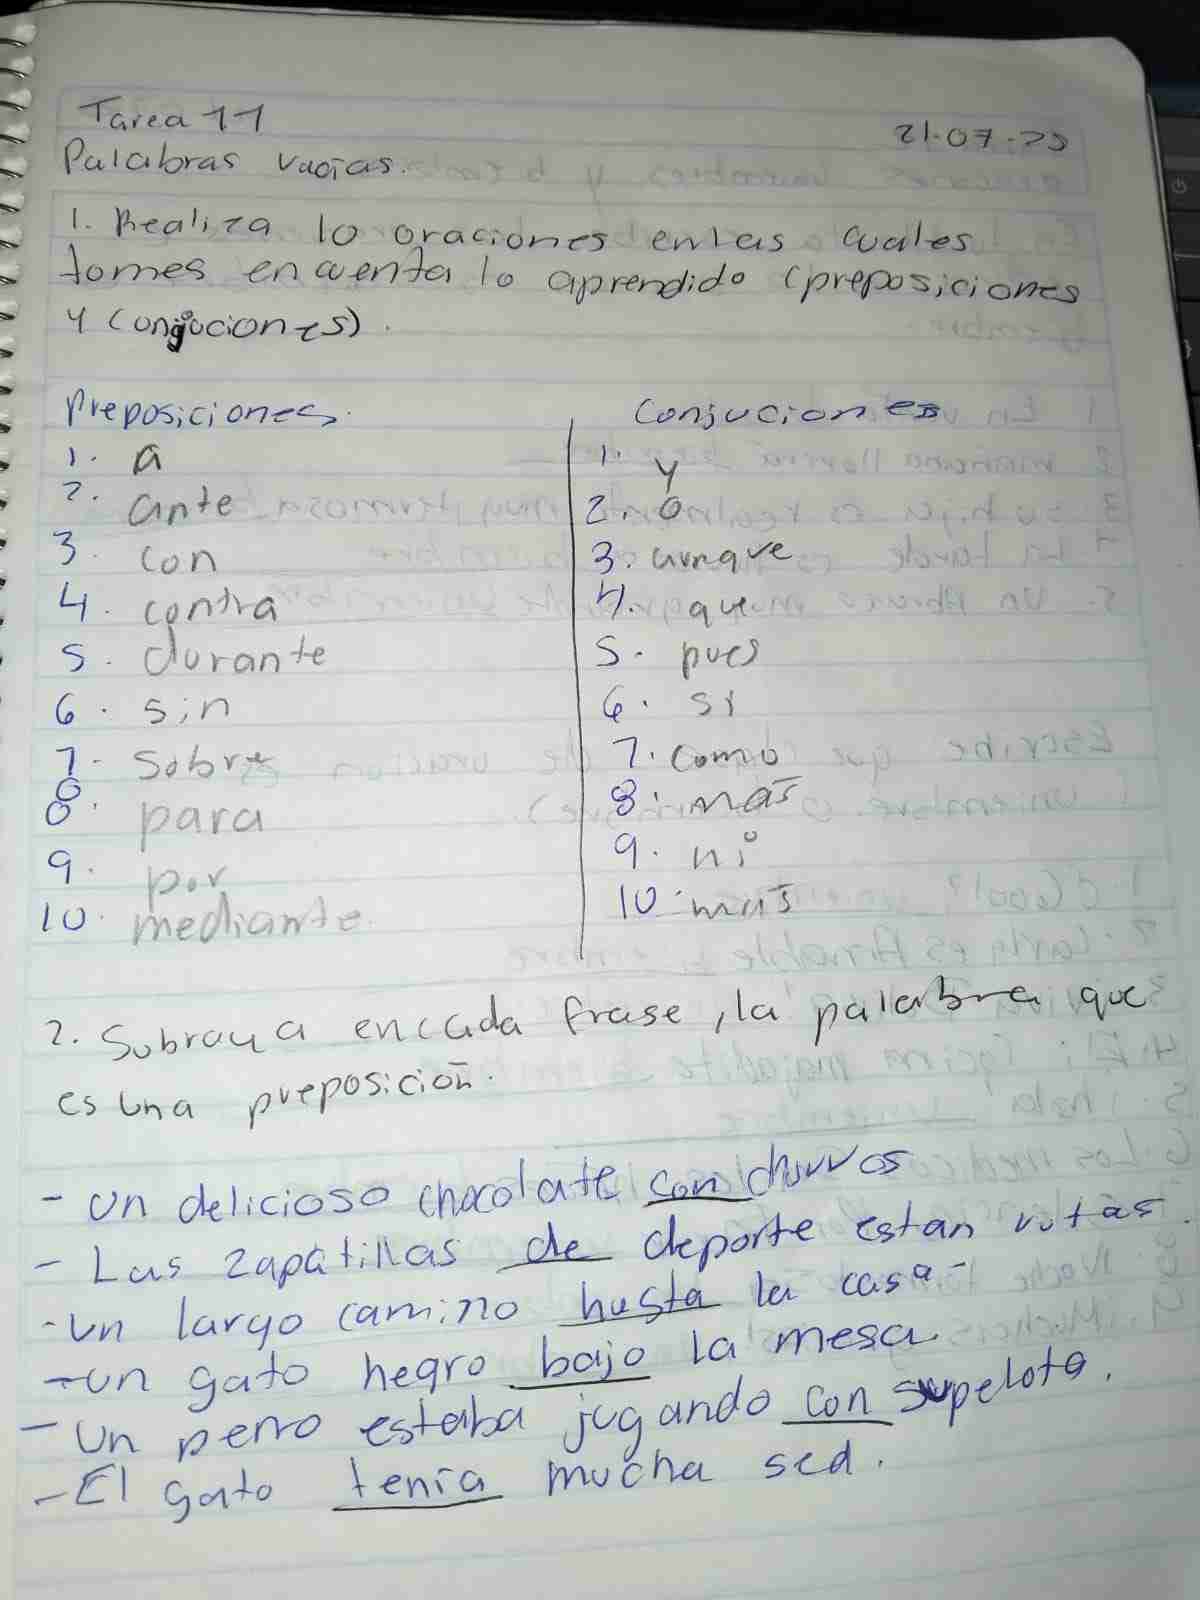 Tarea 11
21-07-25
Palabras vacias.
1. Realiza 10 oraciones enlas cuales
tomes encuenta lo aprendido (preposiciones
y Conjuciones).
Preposiciones.
1. a
2. ante
3. con
4. contra
5. durante
6. sin
7. sobre
8. para
9. por
10. mediante.
Conjuciones
1. y
2. o
3. aunque
4. que
5. pues
6. si
7. como
8. más
9. ni
10. mas
2. Subraya encada frase, la palabra que
es una preposición.
- Un delicioso chocolate con churros
- Las zapatillas de deporte estan rotas.
- Un largo camino hasta la casa-
- un gato negro bajo la mesa.
- Un perro estaba jugando con supelota.
- El gato tenía mucha sed.